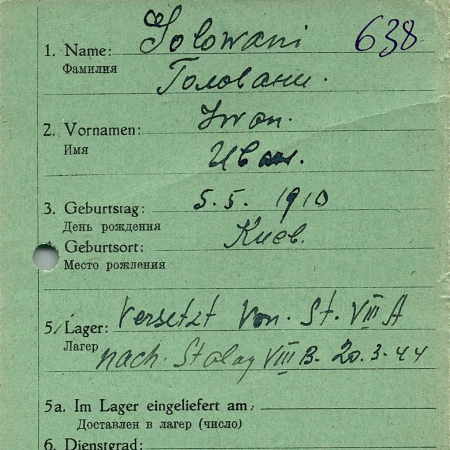 1. Name: Golowani 638
Фамилия Головани.
2. Vornamen: Iwan.
Имя Иван.
3. Geburtstag: 5. 5. 1910
День рождения
Geburtsort: Киев.
Место рожления
5. Lager: Versetzt Von. St. VIII A
Лагерь nach. Stalag VIII B. 20.3-44
5a. Im Lager eingeliefert am:
Доставлен в лагер (число)
6. Dienstgrad: